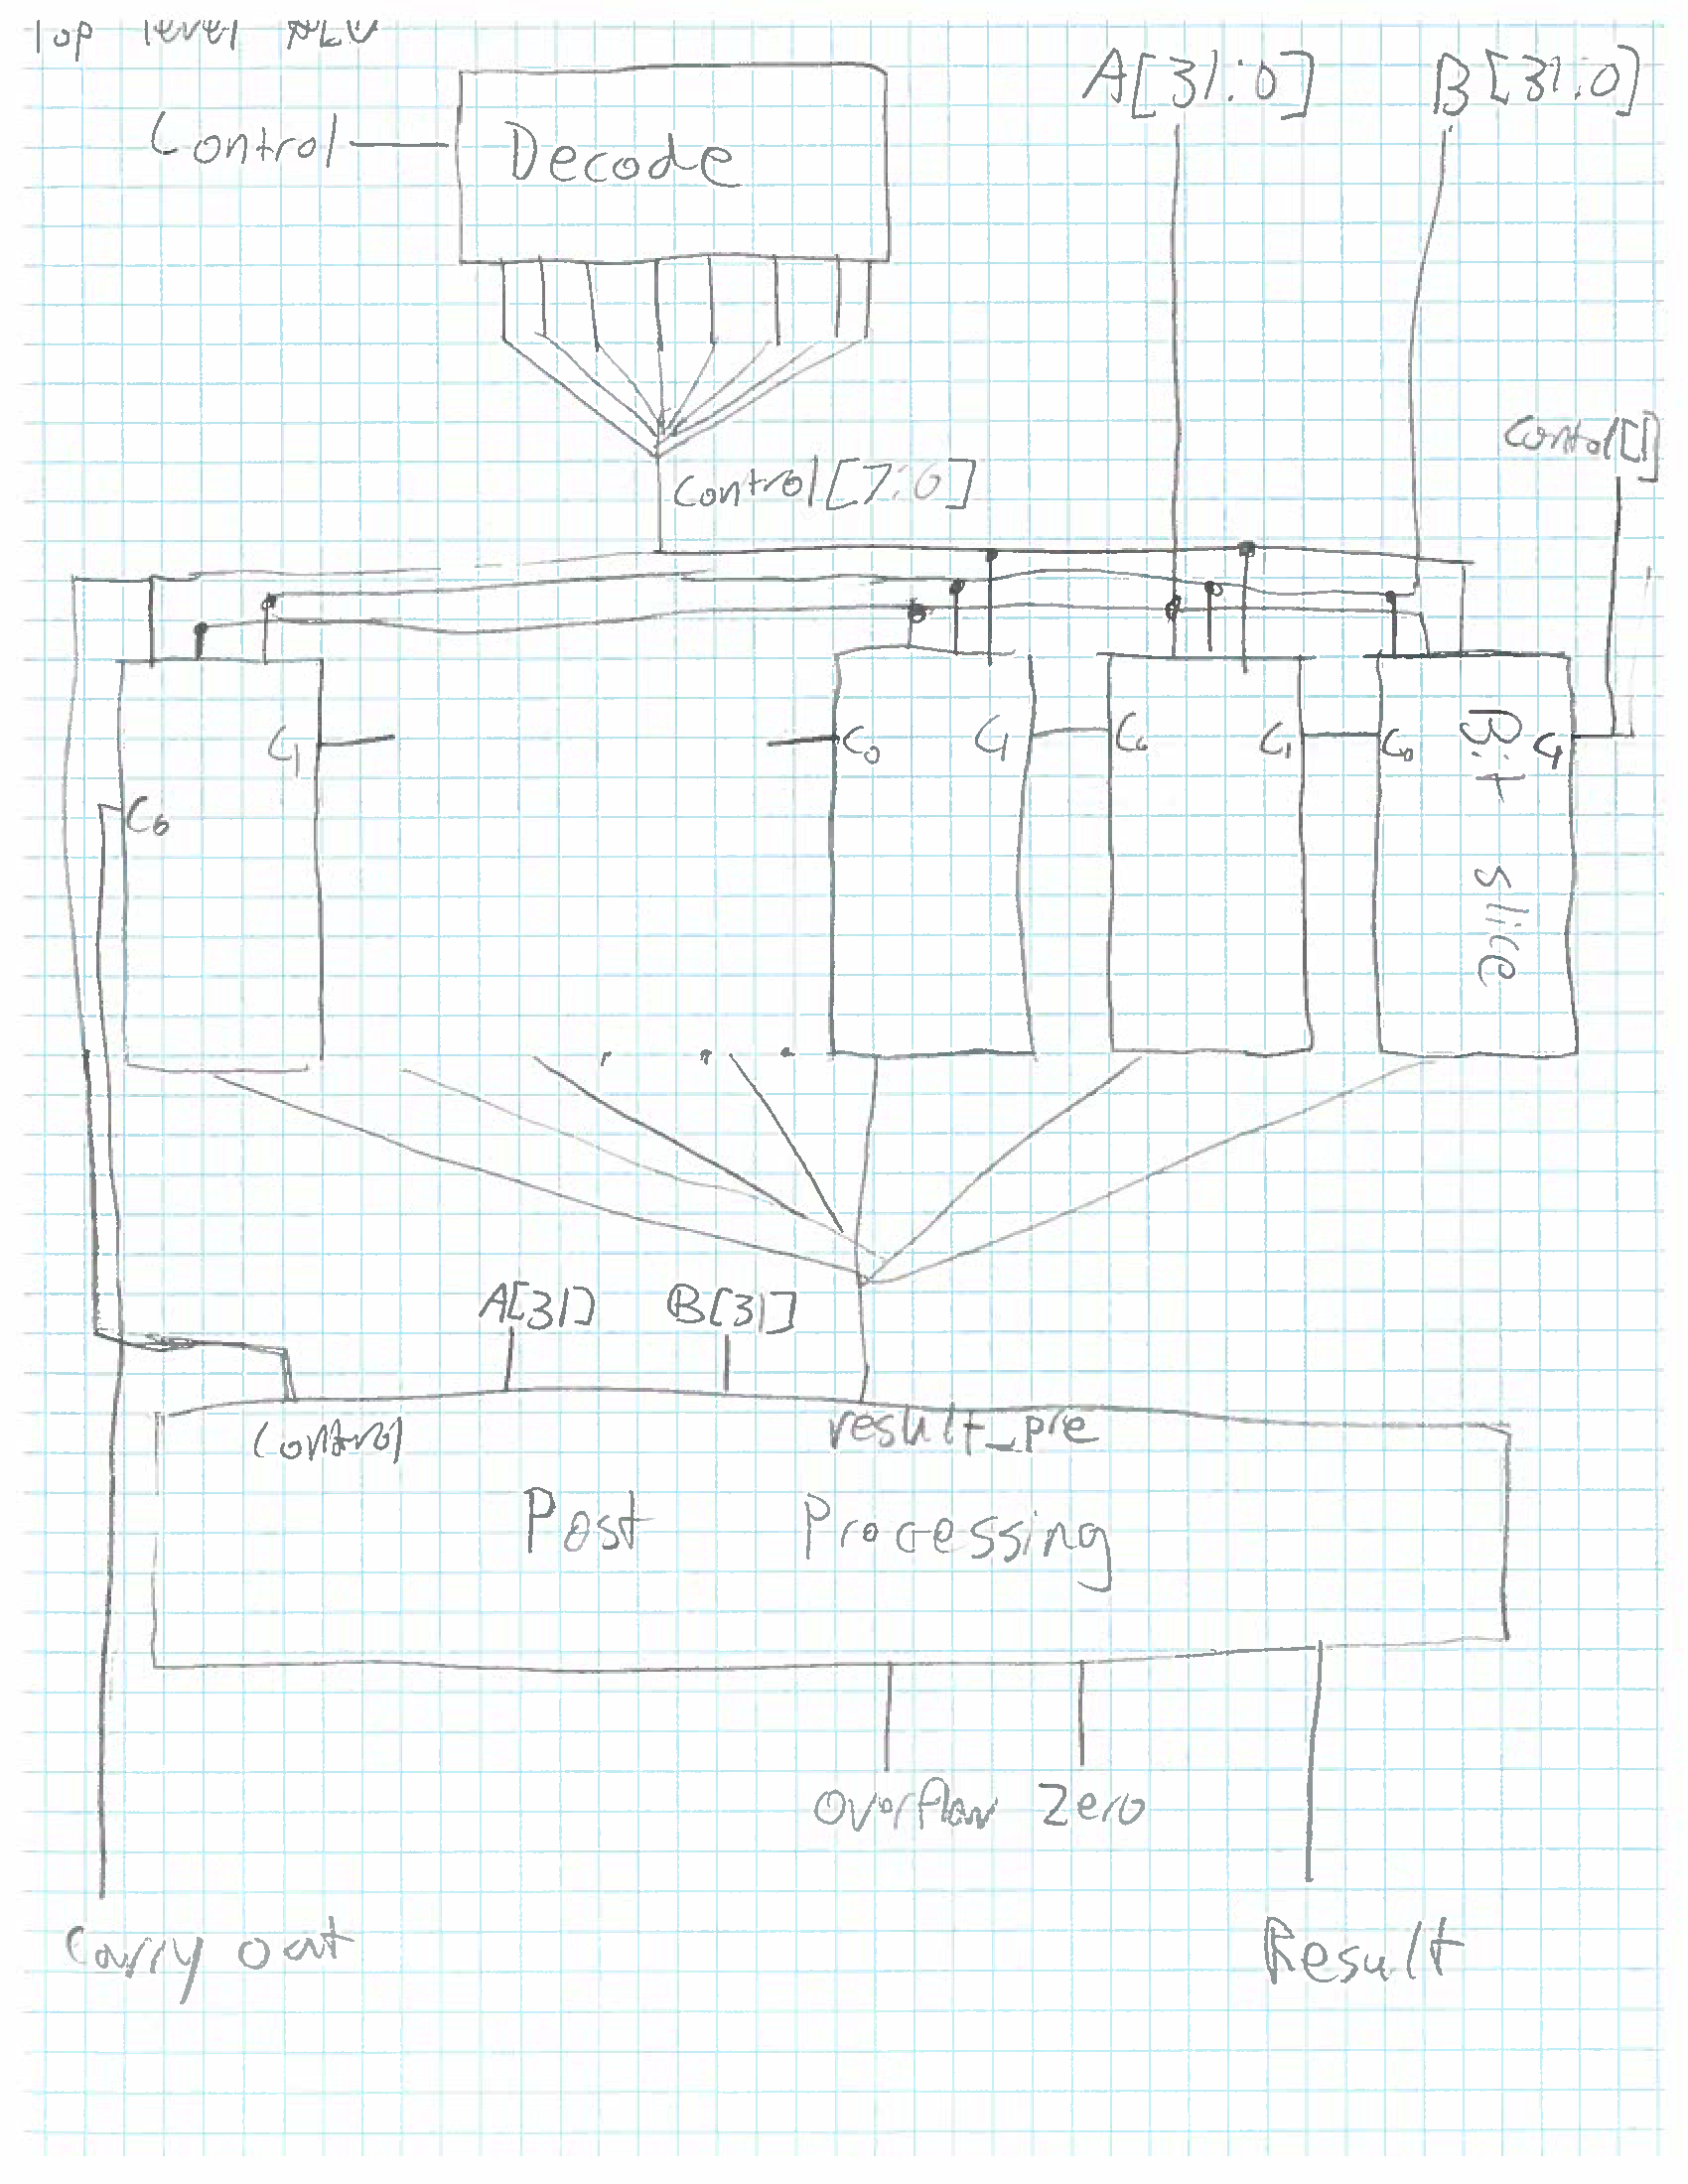 Top level ALU
A[31:0]
B[31:0]
Control
Decode
Contol[1]
Control[7:0]
C1
C0
C1
C0
C1
C0
C1
C0
Bit slice
A[31]
B[31]
Control
result_pre
Post Processing
Overflow
Zero
Carry out
Result